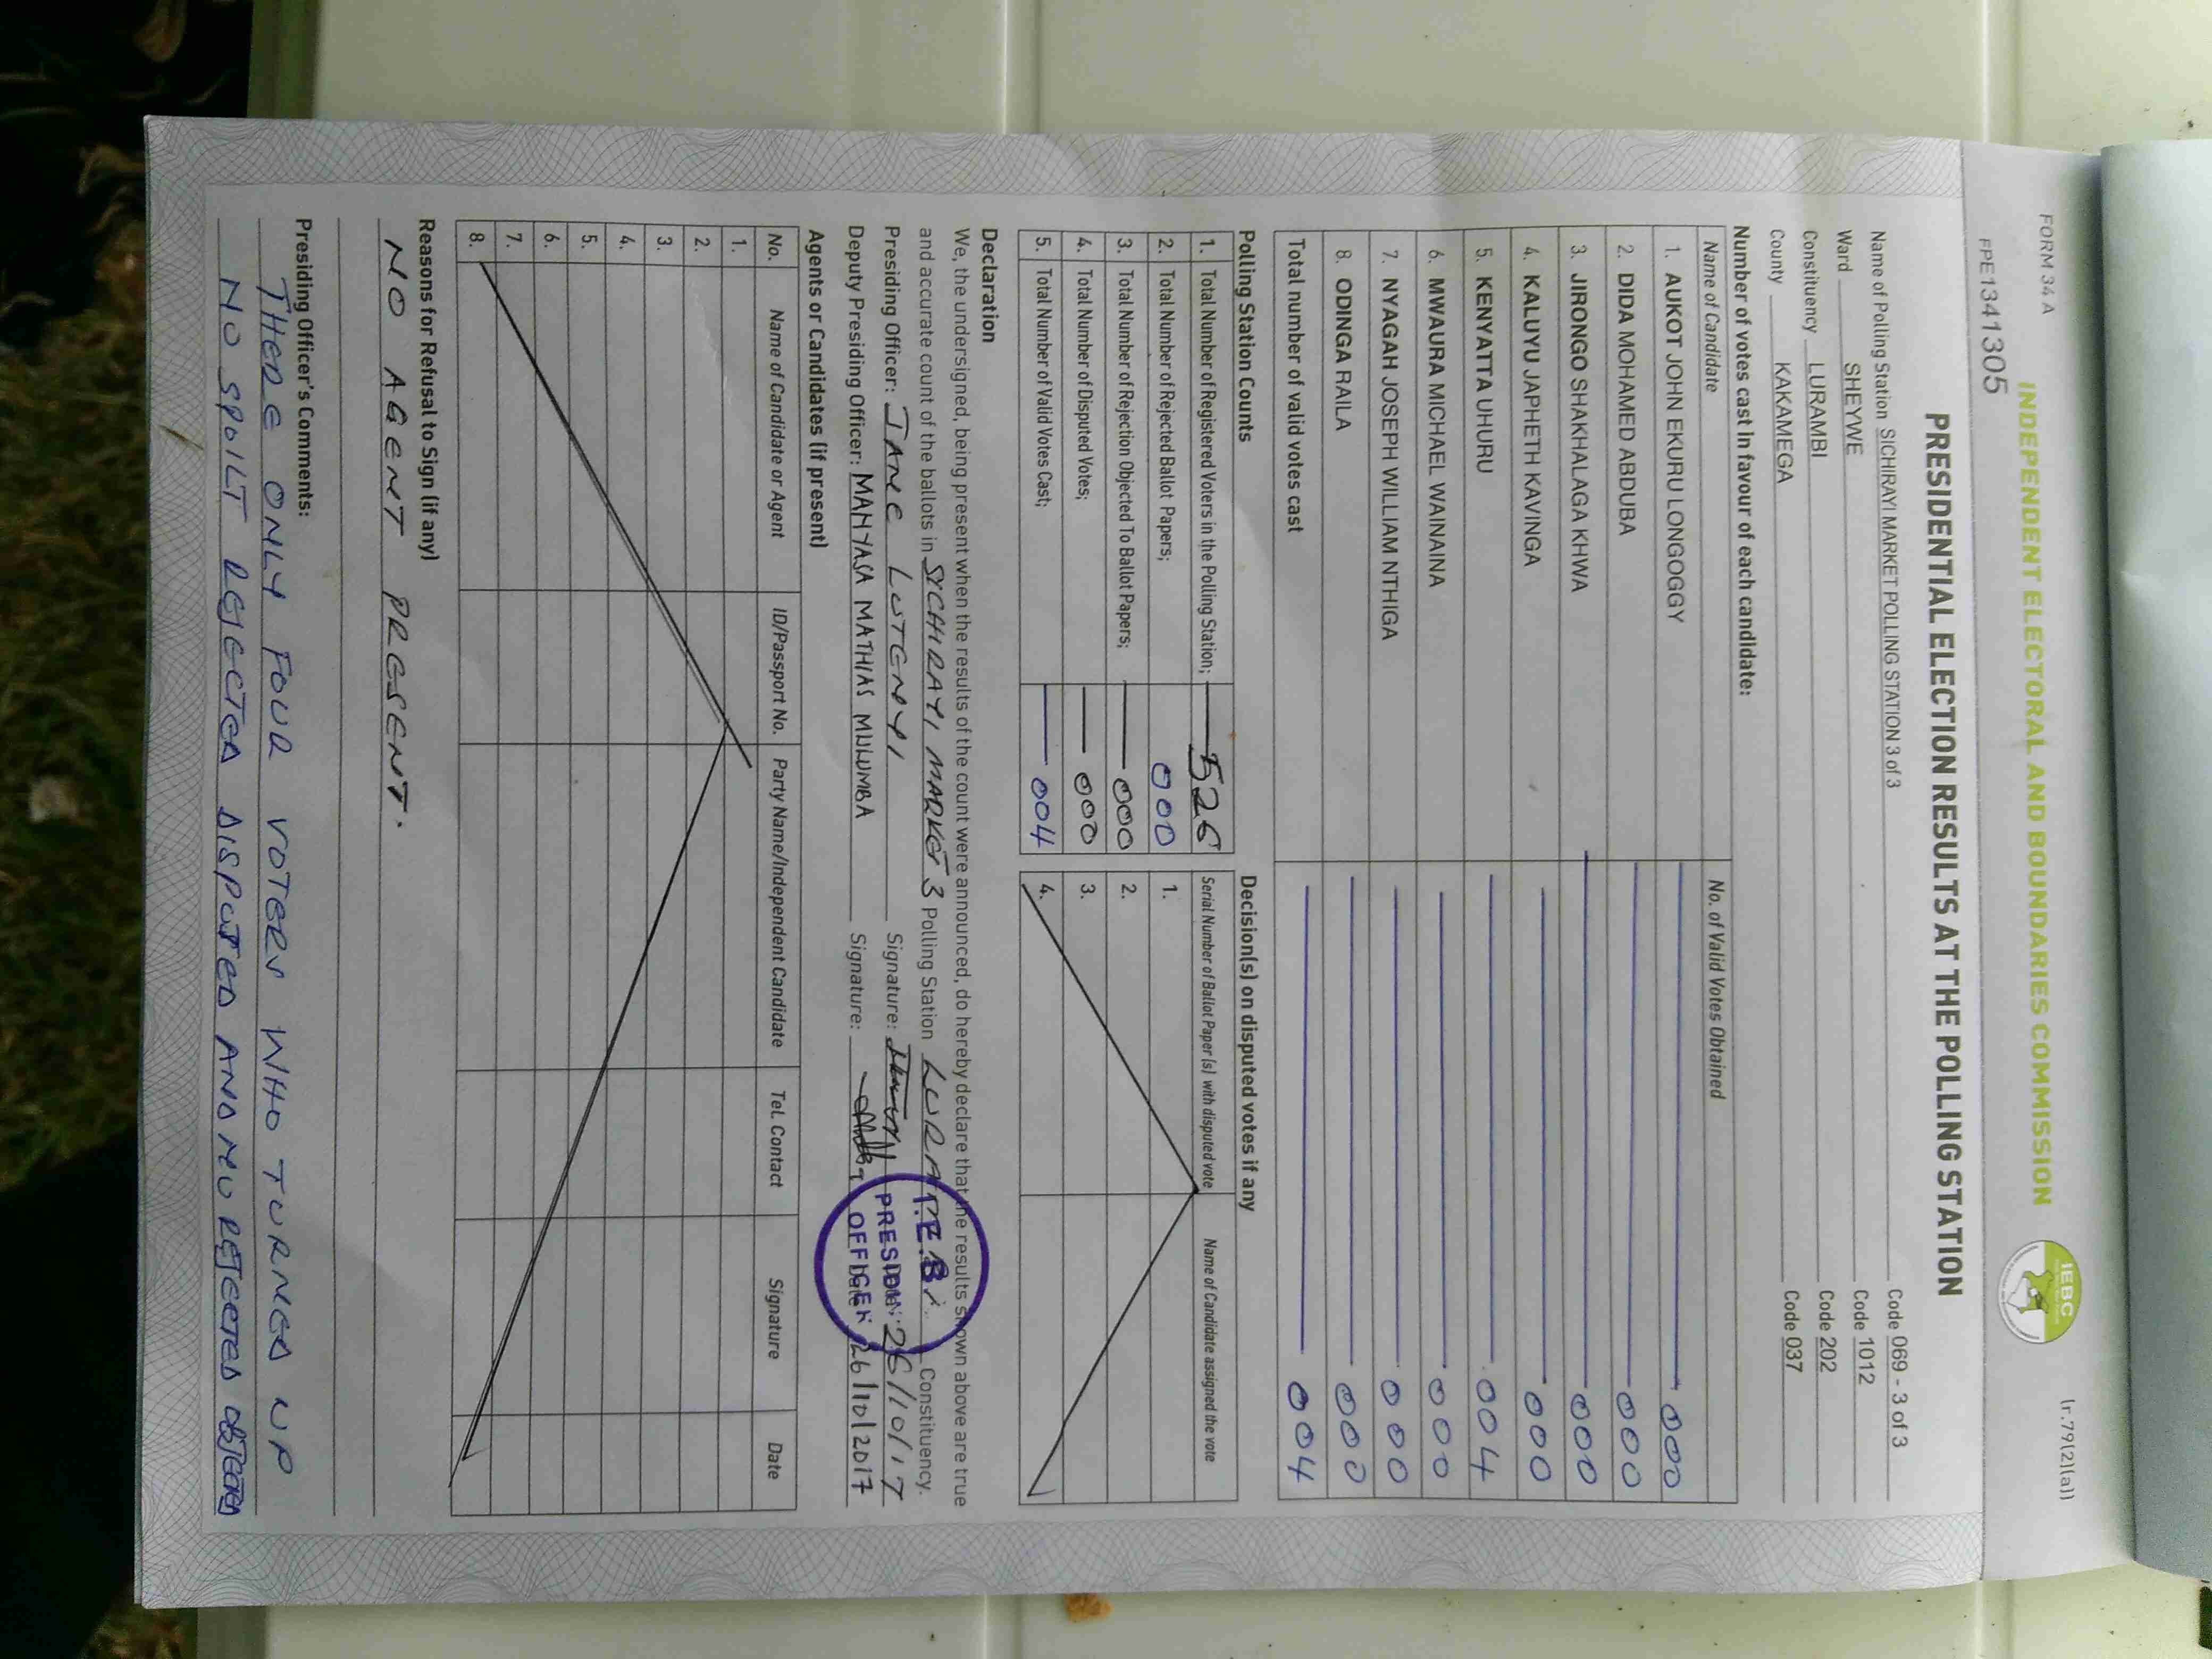 FORM 34 A
Ir.79(2)(a))
INDEPENDENT ELECTORAL AND BOUNDARIES COMMISSION
IEBC
FPE1341305
PRESIDENTIAL ELECTION RESULTS AT THE POLLING STATION
Name of Polling Station SICHIRAYI MARKET POLLING STATION 3 of 3 Code 069 - 3 of 3
Ward SHEYWE Code 1012
Constituency LURAMBI Code 202
County KAKAMEGA Code 037
Number of votes cast in favour of each candidate:
Name of Candidate No. of Valid Votes Obtained
1. AUKOT JOHN EKURU LONGOGGY 000
2. DIDA MOHAMED ABDUBA 000
3. JIRONGO SHAKHALAGA KHWA 000
4. KALUYU JAPHETH KAVINGA 000
5. KENYATTA UHURU 004
6. MWAURA MICHAEL WAINAINA 000
7. NYAGAH JOSEPH WILLIAM NTHIGA 000
8. ODINGA RAILA 000
Total number of valid votes cast 004
Polling Station Counts
1. Total Number of Registered Voters in the Polling Station; 526
2. Total Number of Rejected Ballot Papers; 000
3. Total Number of Rejection Objected To Ballot Papers; 000
4. Total Number of Disputed Votes; 000
5. Total Number of Valid Votes Cast; 004
Decision(s) on disputed votes if any
Serial Number of Ballot Paper (s) with disputed vote Name of Candidate assigned the vote
1.
2.
3.
4.
Declaration
We, the undersigned, being present when the results of the count were announced, do hereby declare that the results shown above are true
and accurate count of the ballots in SICHIRAYI MARKET 3 Polling Station LURAMBI Constituency.
Presiding Officer: JANE LUTENYI Signature: 26/10/17
Deputy Presiding Officer: MAHYASA MATHIAS MULUMBA Signature: 26/10/2017
I.E.B.C
PRESIDING
OFFICER
Agents or Candidates (if present)
No. Name of Candidate or Agent ID/Passport No. Party Name/Independent Candidate Tel. Contact Signature Date
1.
2.
3.
4.
5.
6.
7.
8.
Reasons for Refusal to Sign (if any)
NO AGENT PRESENT.
Presiding Officer's Comments:
THERE ONLY FOUR VOTERS WHO TURNED UP
NO SPOILT REJECTED DISPUTED AND NO REJECTED OBJECTED